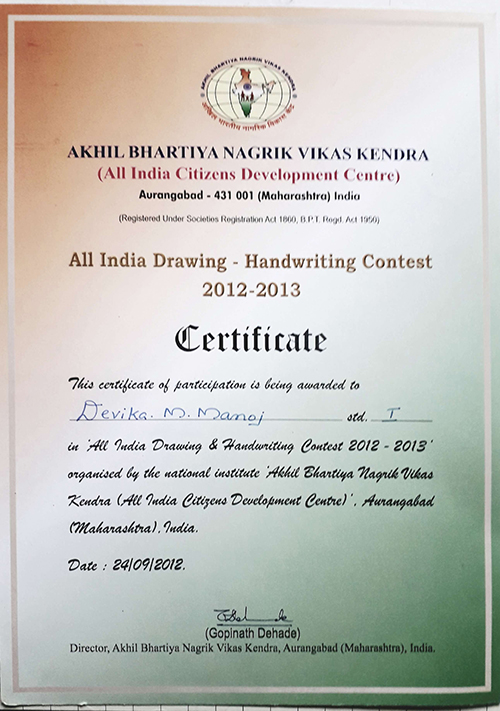 AKHIL BHARTIYA NAGRIK VIKAS KENDRA
अखिल भारतीय नागरिक विकास केंद्र
AKHIL BHARTIYA NAGRIK VIKAS KENDRA
(All India Citizens Development Centre)
Aurangabad - 431 001 (Maharashtra) India
(Registered Under Societies Registration Act 1860, B.P.T. Regd. Act 1950)
All India Drawing - Handwriting Contest
2012-2013
Certificate
This certificate of participation is being awarded to
Devika. M. Manoj std. I
in 'All India Drawing & Handwriting Contest 2012 - 2013'
organised by the national institute 'Akhil Bhartiya Nagrik Vikas
Kendra (All India Citizens Development Centre)', Aurangabad
(Maharashtra), India.
Date : 24/09/2012.
(Gopinath Dehade)
Director, Akhil Bhartiya Nagrik Vikas Kendra, Aurangabad (Maharashtra), India.